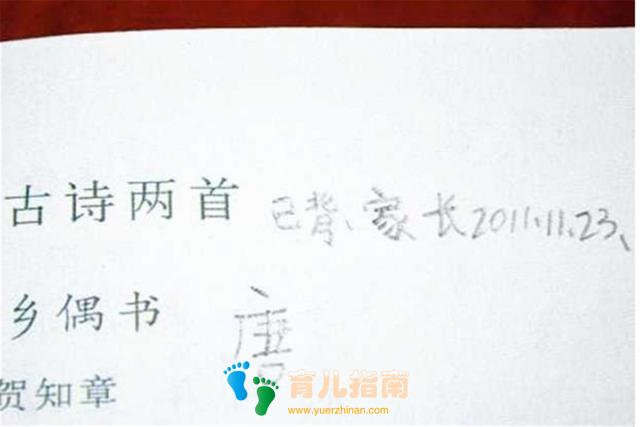 古诗两首 已背、家长2011.11.23、
乡偶书 唐
贺知章
育儿指南
www.yuerzhinan.com